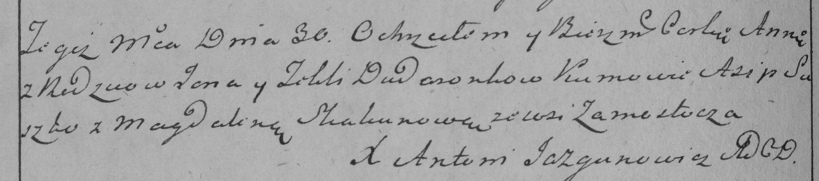 Tegiż Mca Dnia 30. Ochrzciłem y Bierzm Corkę Annę
z Rodzicow Jana y Tekli Dudaronkow Kumowie Asip Su
szko z Magdaleną Skakunową zewsi Zamostocza
X Antoni Jazgunowicz ADCD.